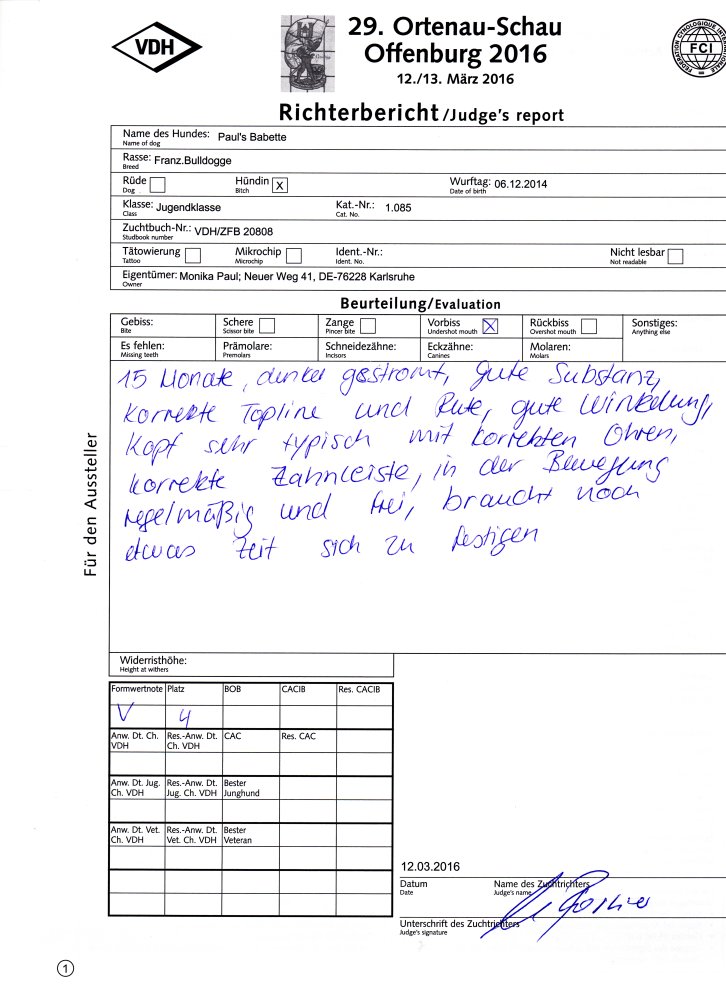 VDH
29. Ortenau-Schau
Offenburg 2016
12./13. März 2016
FEDERATION CYNOLOGIQUE INTERNATIONALE
FCI
Richterbericht/Judge's report
Name des Hundes: Paul's Babette
Name of dog
Rasse: Franz.Bulldogge
Breed
Rüde Hündin X Wurftag: 06.12.2014
Dog Bitch Date of birth
Klasse: Jugendklasse Kat.-Nr.: 1.085
Class Cat. No.
Zuchtbuch-Nr.: VDH/ZFB 20808
Studbook number
Tätowierung Mikrochip Ident.-Nr.: Nicht lesbar
Tattoo Microchip Ident. No. Not readable
Eigentümer: Monika Paul; Neuer Weg 41, DE-76228 Karlsruhe
Owner
Beurteilung/Evaluation
Gebiss: Schere Zange Vorbiss X Rückbiss Sonstiges:
Bite Scissor bite Pincer bite Undershot mouth Overshot mouth Anything else
Es fehlen: Prämolare: Schneidezähne: Eckzähne: Molaren:
Missing teeth Premolars Incisors Canines Molars
15 Monate, dunkel gestromt, gute Substanz,
korrekte Topline und Rute, gute Winkelung,
Kopf sehr typisch mit korrekten Ohren,
korrekte Zahnleiste, in der Bewegung
regelmäßig und frei, braucht noch
etwas Zeit sich zu festigen
Für den Aussteller
Widerristhöhe:
Height at withers
Formwertnote Platz BOB CACIB Res. CACIB
V 4
Anw. Dt. Ch. Res.-Anw. Dt. CAC Res. CAC
VDH Ch. VDH
Anw. Dt. Jug. Res.-Anw. Dt. Bester
Ch. VDH Jug. Ch. VDH Junghund
Anw. Dt. Vet. Res.-Anw. Dt. Bester
Ch. VDH Vet. Ch. VDH Veteran
12.03.2016
Datum Name des Zuchtrichters
Date Judge's name
Unterschrift des Zuchtrichters
Judge's signature
1